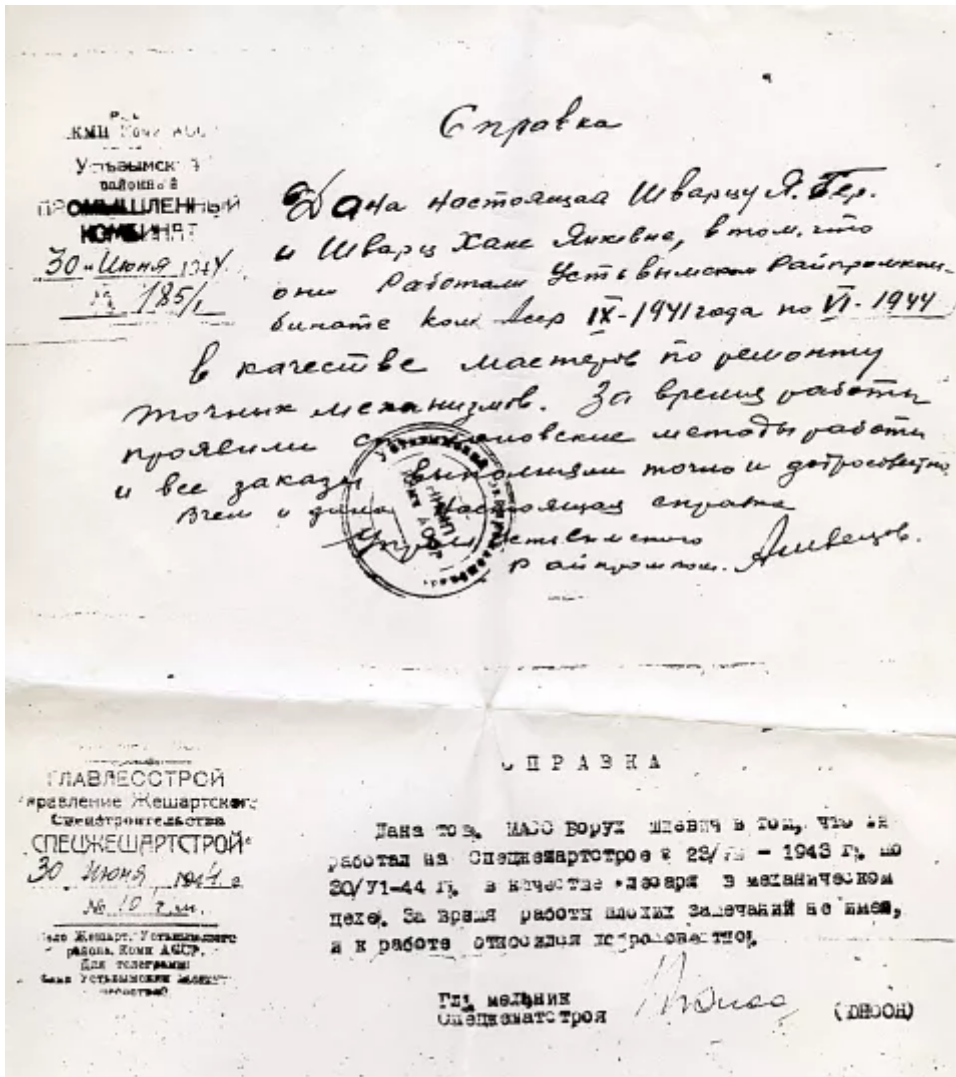 Справка
Усть-Вымский
районный
ПРОМЫШЛЕННЫЙ
КОМБИНАТ
30 " Июня 1944
№ 185/1
Дана настоящая Шварцу Я. Гер.
и Шварц Хане Янкевне, в том, что
они Работали Устьвымском Райпромком-
бинате Коми Асср IX-1941 года по VI-1944
в качестве мастеров по ремонту
точных механизмов. За время работы
проявили стахановские методы работы
и все заказы выполняли точно и добросовестно
В чем и дана настоящая справка
Устьвымского
Райпромком. Ашвецов.
СПРАВКА
ГЛАВЛЕССТРОЙ
Управление Жешартского
Спецстроительства
„СПЕЦЖЕШАРТСТРОЙ"
30 Июня 1944 г
№ 10
Село Жешарт, Устьвымского
района, Коми АССР.
Для телеграмм:
Дана тов. МАСС Борух в том, что он
работал на Спецжешартстрое с 23/ – 1943 г. по
30/У1-44 г. в качестве слесаря в механическом
цехе. За время работы плохих замечаний не имел,
и к работе относился добросовестно.
Гл. механик
Спецжешартстроя